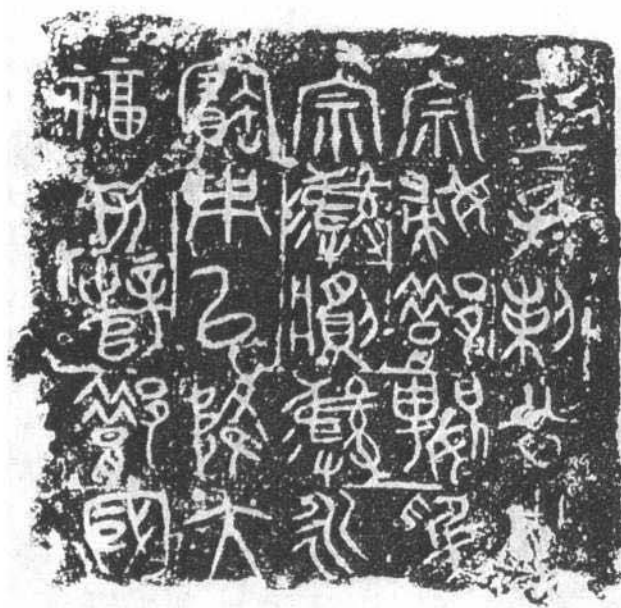 王子剌公之
宗婦𨛭嬰為
宗彝𩰫彝永
寶用以降大
福保辥𨛭國